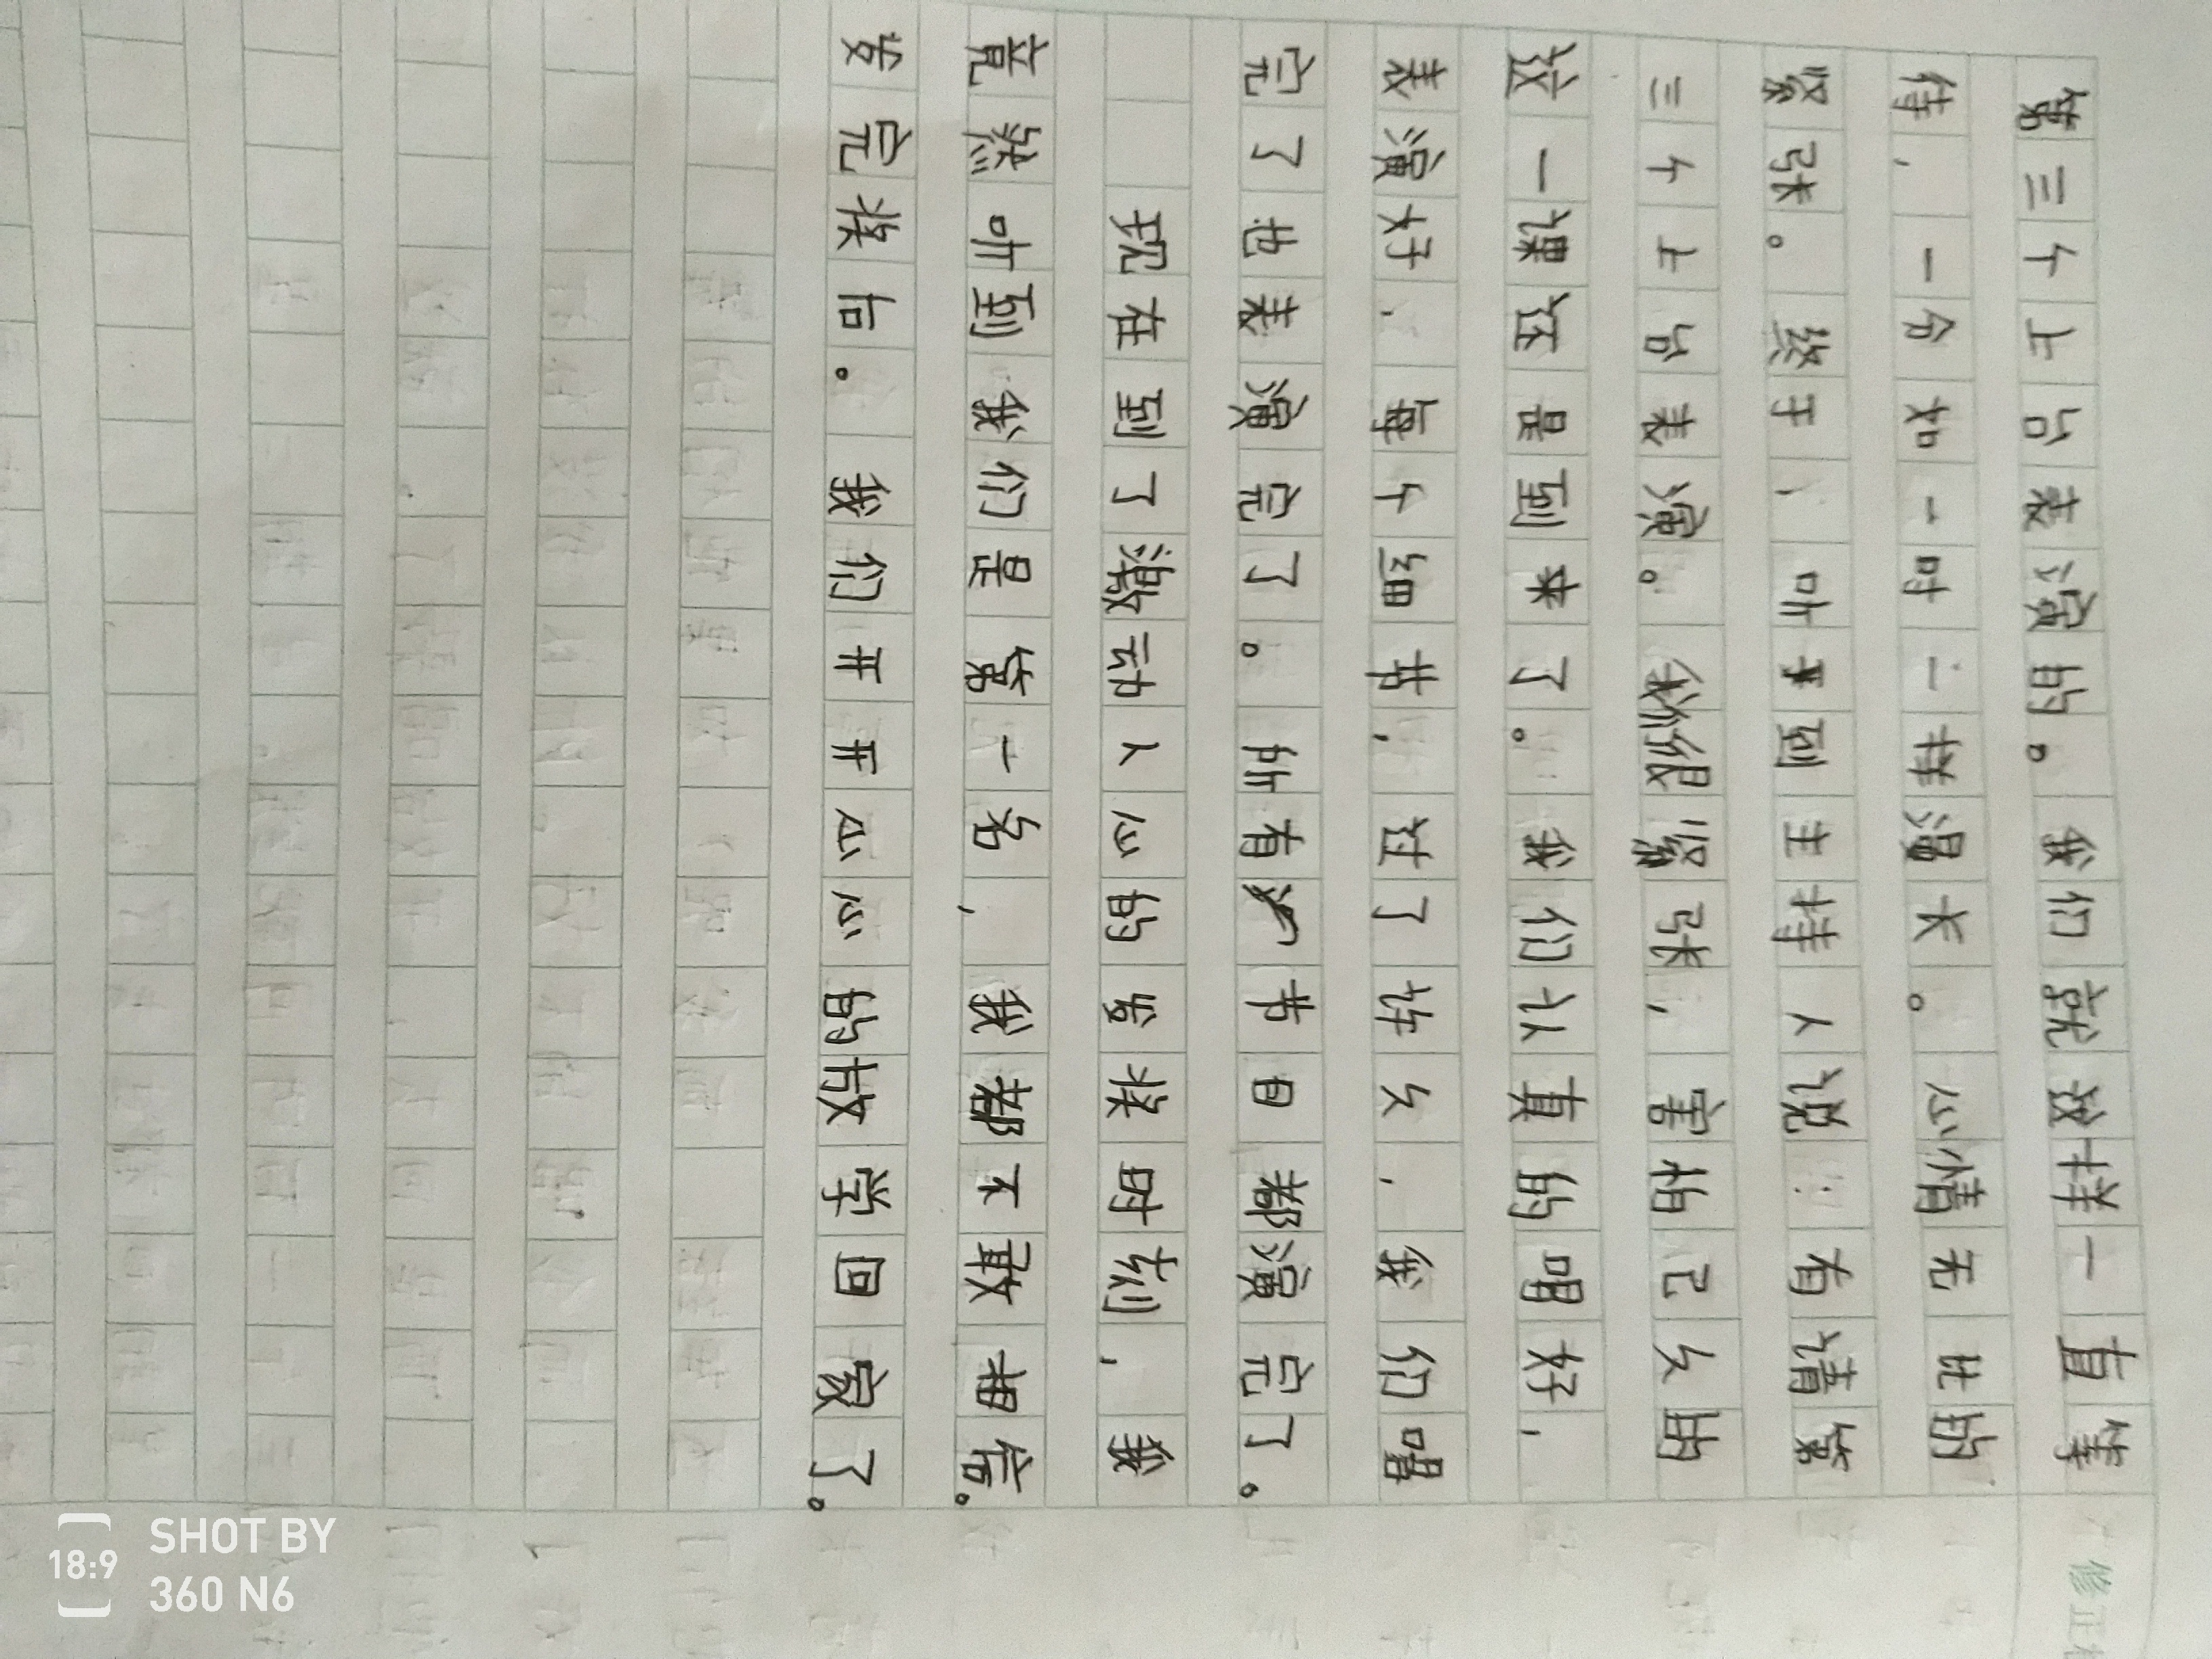 第三个上台表演的。我们就这样一直等
待，一分如一时一样漫长。心情无比的
紧张。终于，听到主持人说：有请第
三个上台表演。我们很紧张，害怕已久的
这一课还是到来了。我们认真的唱好，
表演好，每个细节，过了许久，我们唱
完了也表演完了。所有节目都演完了。
现在到了激动人心的发奖时刻，我
竟然听到我们是第一名，我都不敢相信。
发完奖后。我们开开心心的放学回家了。
修正
SHOT BY
360 N6
18:9